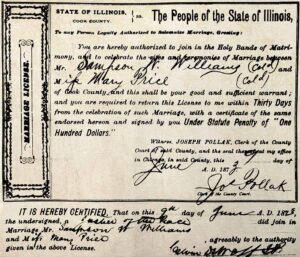 STATE OF ILLINOIS, ss. The People of the State of Illinois,
COOK COUNTY.
To any Person Legally Authorized to Solemnize Marriage, Greeting:
You are hereby authorized to join in the Holy Bands of Matri-
mony, and to celebrate the rites and ceremonies of Marriage between
Mr. Sampson W Williams (Col'd)
and Miss Mary Price (Col'd)
of Cook County, and this shall be your good and sufficient warrant;
and you are required to return this License to me within Thirty Days
from the celebration of such Marriage, with a certificate of the same
endorsed hereon and signed by you Under Statute Penalty of "One
Hundred Dollars."
Witness, JOSEPH POLLAK, Clerk of the County
Court of said County, and the seal office
in Chicago, in said County, this
June A. D. 187
Jos Pollak
Clerk of the County Court.
MARRIAGE LICENSE
IT IS HEREBY CERTIFIED, That on this 9th day of June A. D. 187
the undersigned, a Justice of the Peace did join in
Marriage Mr. Sampson W Williams
and Miss Mary Price agreeably to the authority
given in the above License.